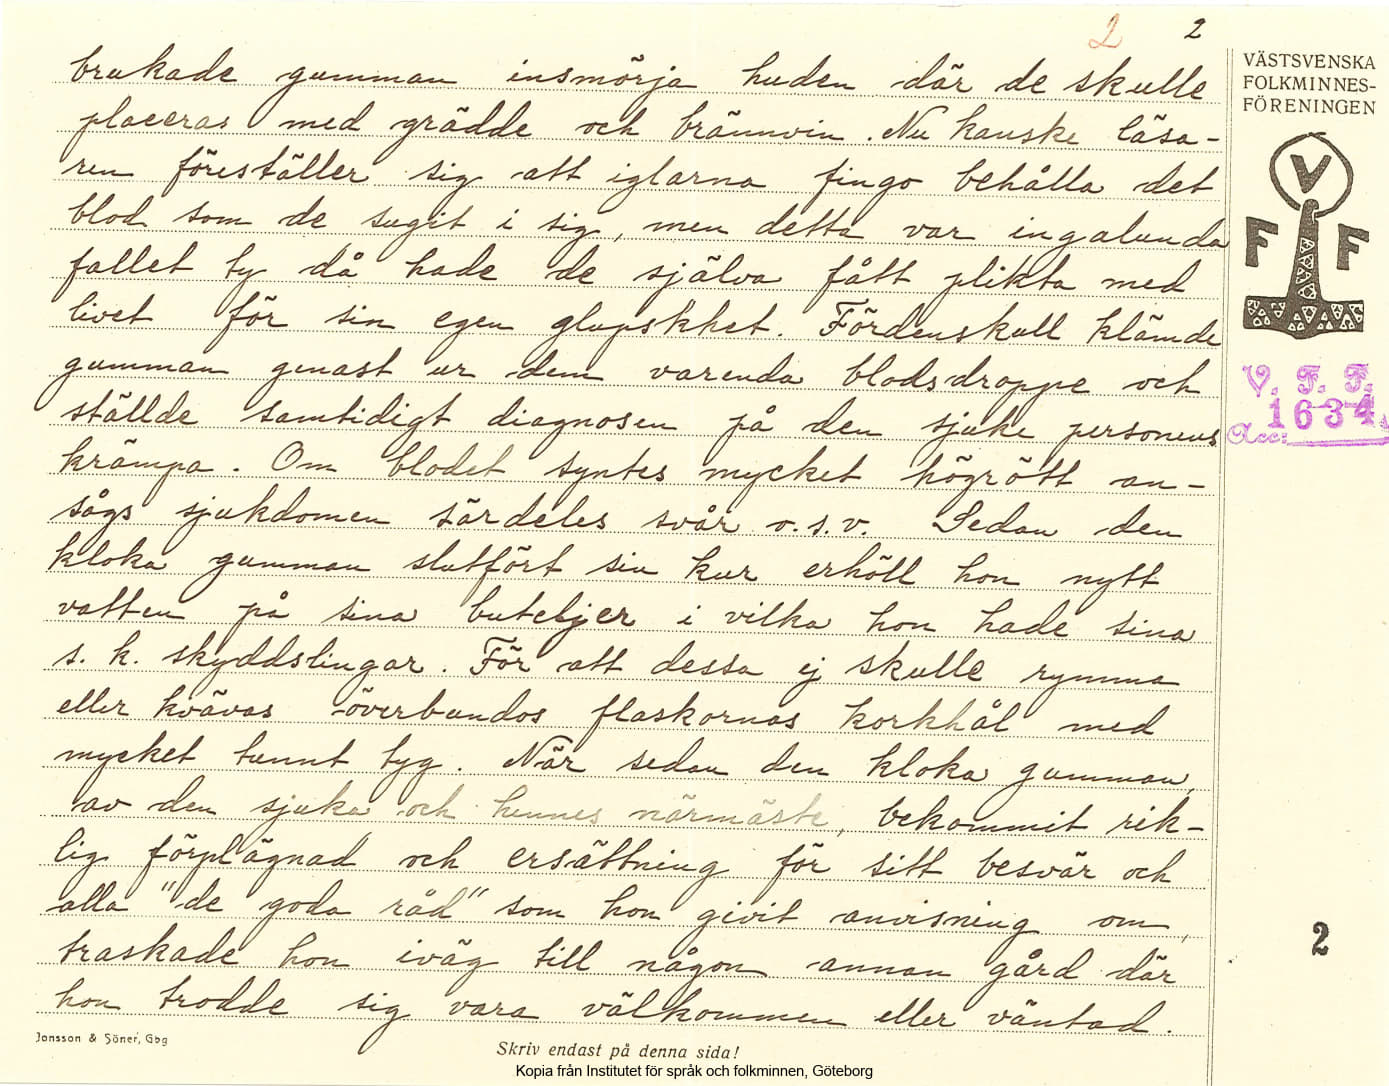 2 2
brukade gumman insmörja huden där de skulle
placeras med grädde och brännvin. Nu kanske läsa-
ren föreställer sig att iglarna fingo behålla det
blod som de sugit i sig, men detta var ingalunda
fallet ty då hade de själva fått plikta med
livet för sin egen glupskhet. Fördenskull klämde
gumman genast ur dem varenda blodsdroppe och
ställde samtidigt diagnosen på den sjuke personens
krämpa. Om blodet syntes mycket högrött an-
sågs sjukdomen särdeles svår o.s.v. Sedan den
kloka gumman slutfört sin kur erhöll hon nytt
vatten på sina buteljer i vilka hon hade sina
s. k. skyddslingar. För att dessa ej skulle rymma
eller kvävas överbundos flaskornas korkhål med
mycket tunnt tyg. När sedan den kloka gumman,
av den sjuka och hennes närmäste, bekommit rik-
lig förplägnad och ersättning för sitt besvär och
alla "de goda råd" som hon givit anvisning om,
traskade hon iväg till någon annan gård där
hon trodde sig vara välkommen eller väntad.
VÄSTSVENSKA
FOLKMINNES-
FÖRENINGEN
V
F F
V. F. F.
1634
Acc:
2
Jonsson & Söner, Gbg
Skriv endast på denna sida!
Kopia från Institutet för språk och folkminnen, Göteborg